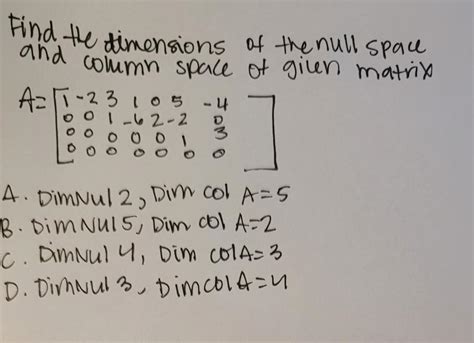 Find the dimensions of the null space
and column space of given matrix
A= [1 -2 3 1 0 5 -4
0 0 1 -6 2 -2 0
0 0 0 0 0 1 3
0 0 0 0 0 0 0]
A. DimNul 2, Dim col A=5
B. DimNul 5, Dim col A=2
C. DimNul 4, Dim colA=3
D. DimNul 3, DimcolA=4